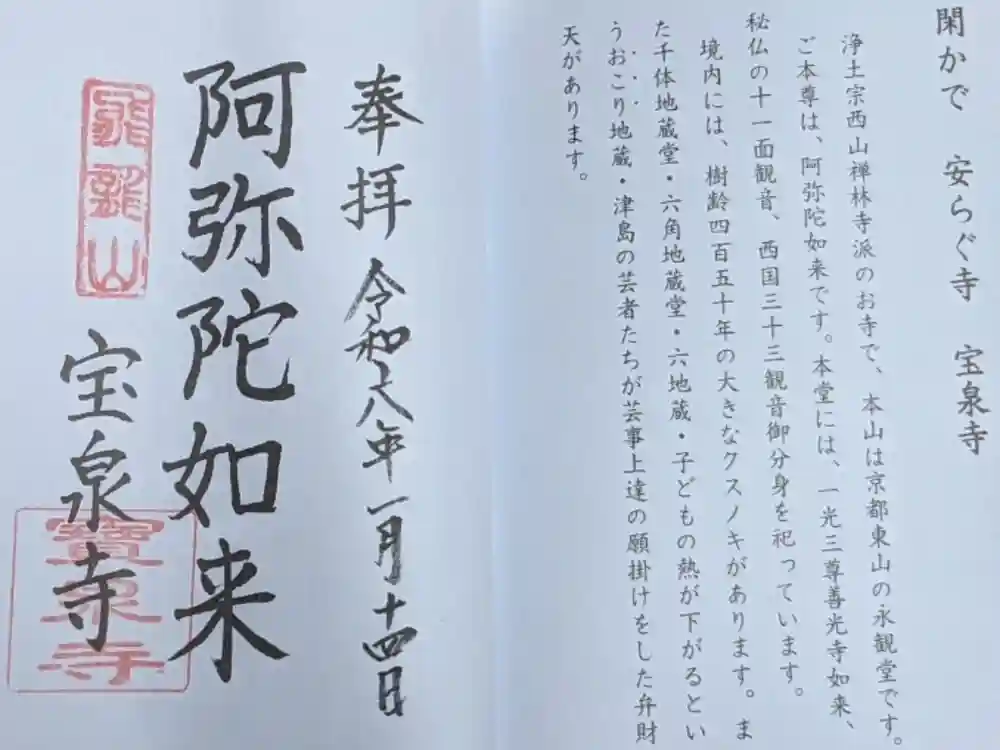 閑かで 安らぐ寺 宝泉寺
浄土宗西山禅林寺派のお寺で、本山は京都東山の永観堂です。
ご本尊は、阿弥陀如来です。本堂には、一光三尊善光寺如来、
秘仏の十一面観音、西国三十三観音御分身を祀っています。
境内には、樹齢四百五十年の大きなクスノキがあります。ま
た千体地蔵堂・六角地蔵堂・六地蔵・子どもの熱が下がるとい
うおこり地蔵・津島の芸者たちが芸事上達の願掛けをした弁財
天があります。
奉拝 令和八年一月十四日
阿弥陀如来
宝泉寺
寶泉寺